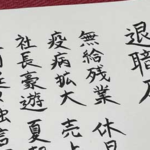 退職
無給残業 休日
疫病拡大 売上
社長豪遊 夏
独言